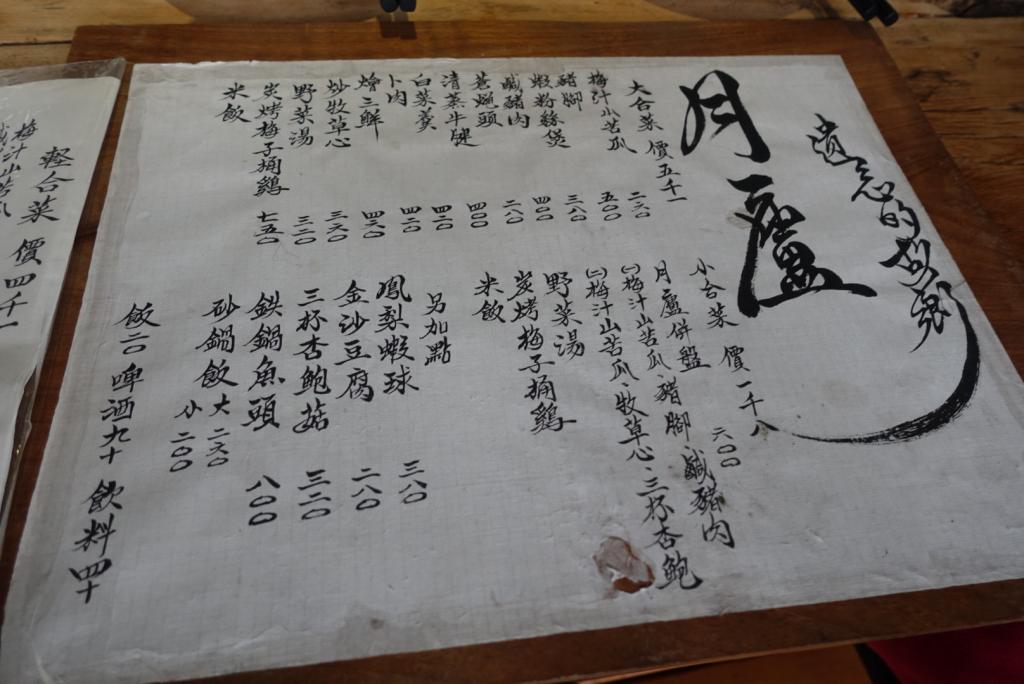 遺忘的故鄉
月廬
大合菜 價五千一
梅汁小苦瓜 二六〇
豬腳 五〇〇
蝦粉絲煲 三八〇
鹹豬肉 四〇〇
蒼蠅頭 二八〇
清蒸牛腱 四〇〇
白菜羹 四二〇
卜肉 四二〇
燴三鮮 四六〇
炒牧草心 三六〇
野菜湯 三二〇
炭烤梅子桶鷄 七五〇
米飯
小合菜 價一千八
月廬併盤 六〇〇
㈠梅汁山苦瓜、豬腳、鹹豬肉
㈡梅汁山苦瓜、牧草心、三杯杏鮑
野菜湯
炭烤梅子桶鷄
米飯
另加點
鳳梨蝦球 三八〇
金沙豆腐 二八〇
三杯杏鮑菇 三二〇
鉄鍋魚頭 八〇〇
砂鍋飯 大二六〇
小二〇〇
飯二〇 啤酒九十 飲料四十
輕合菜 價四千一
梅汁山苦瓜